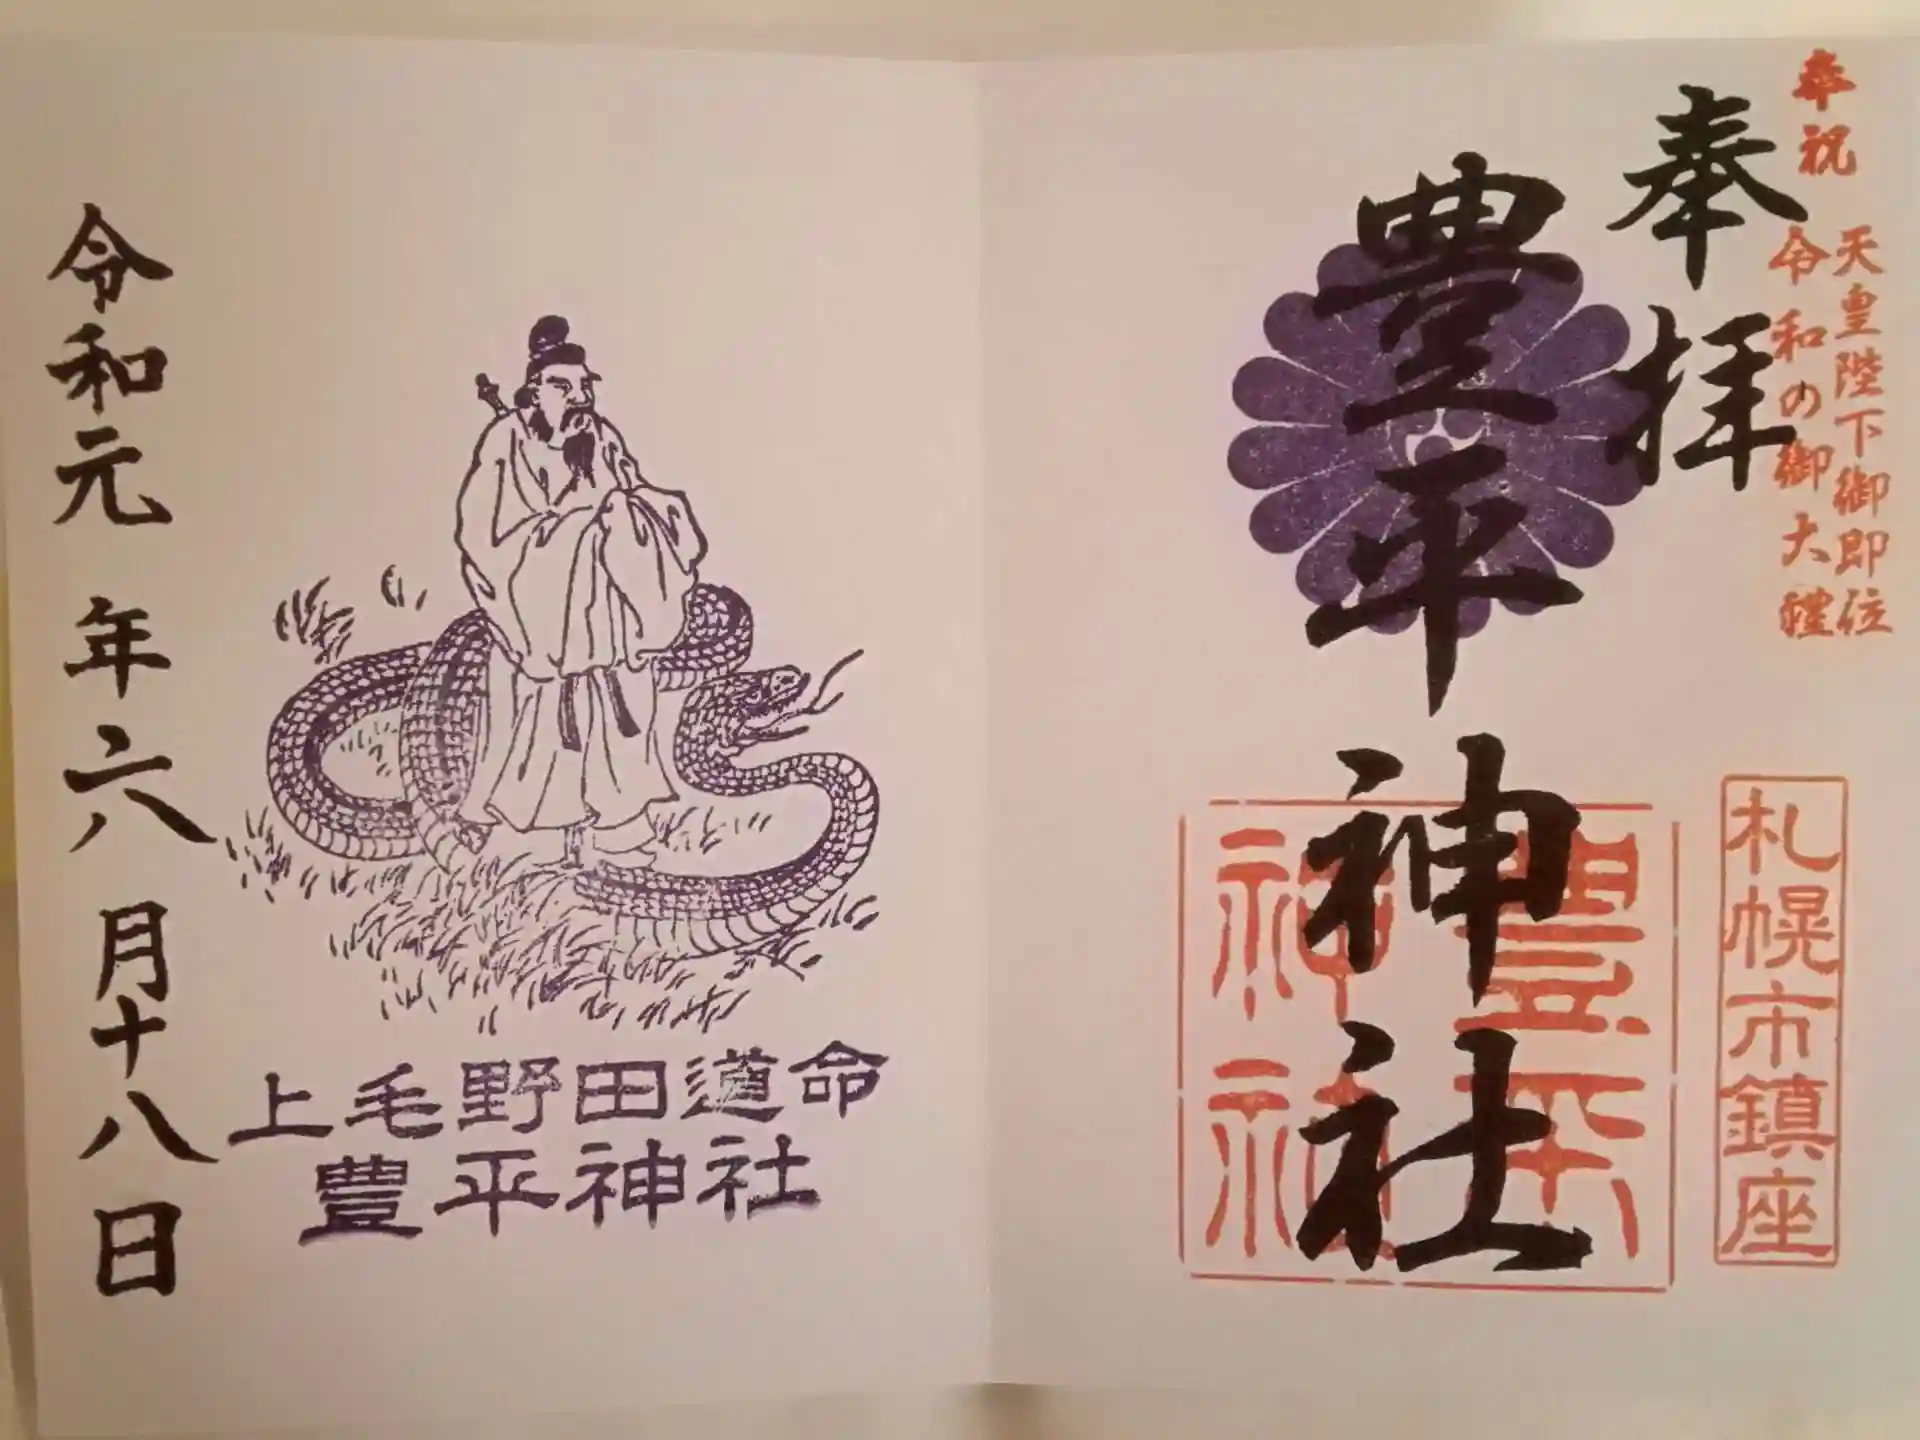 奉祝
天皇陛下御即位
令和の御大禮
奉拝
札幌市鎮座
豊平神社
豊平
神社
上毛野田道命
豊平神社
令和元年六月十八日